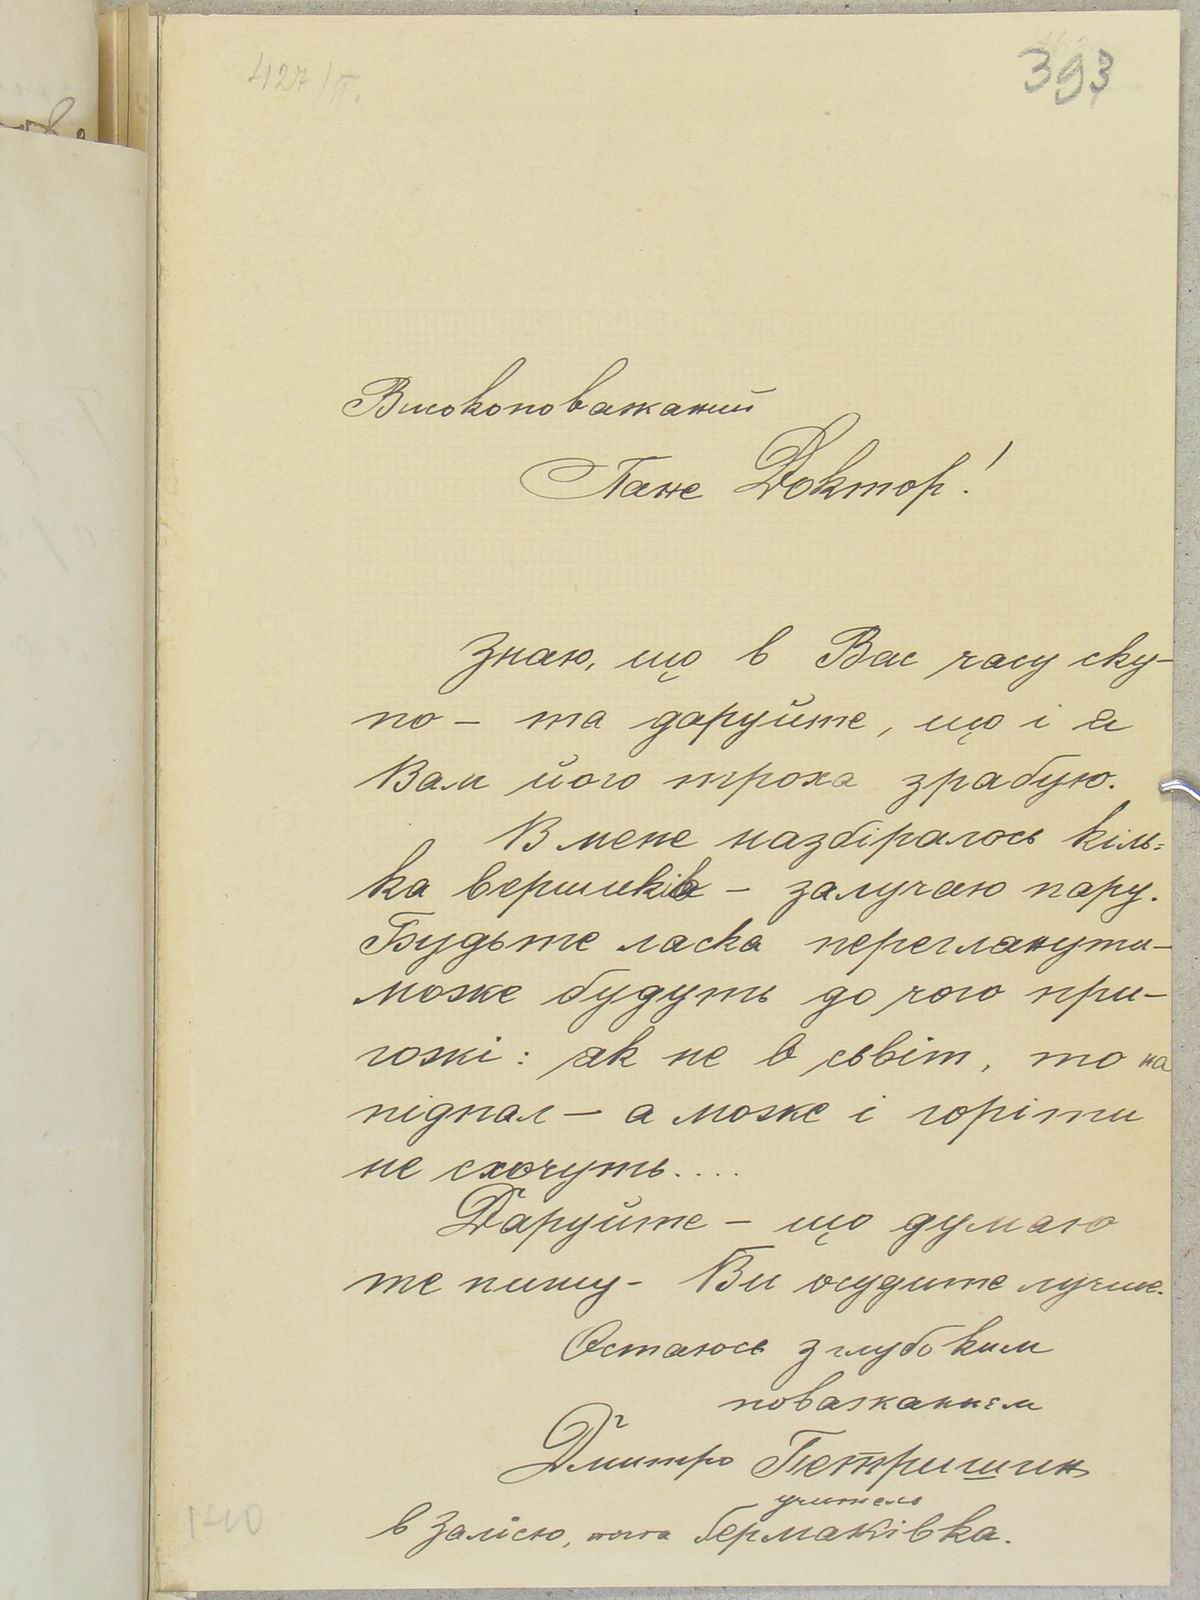 427/П.
393
Високоповажаний
Пане Доктор!
Знаю, що в Вас часу ску-
по - та даруйте, що і я
Вам його троха зрабую.
В мене назбіралось кіль=
ка вершиків - залучаю пару.
Будьте ласка переглянути-
може будуть до чого при-
гожі: як не в сьвіт, то на
підпал - а може і горіти
не схочуть....
Даруйте - що думаю
те пишу - Ви осудите лучше.
Остаюсь з глубоким
поважаннєм
Дмитро Петришин
учитель
в Залісю, пошта Гермаківка.
140